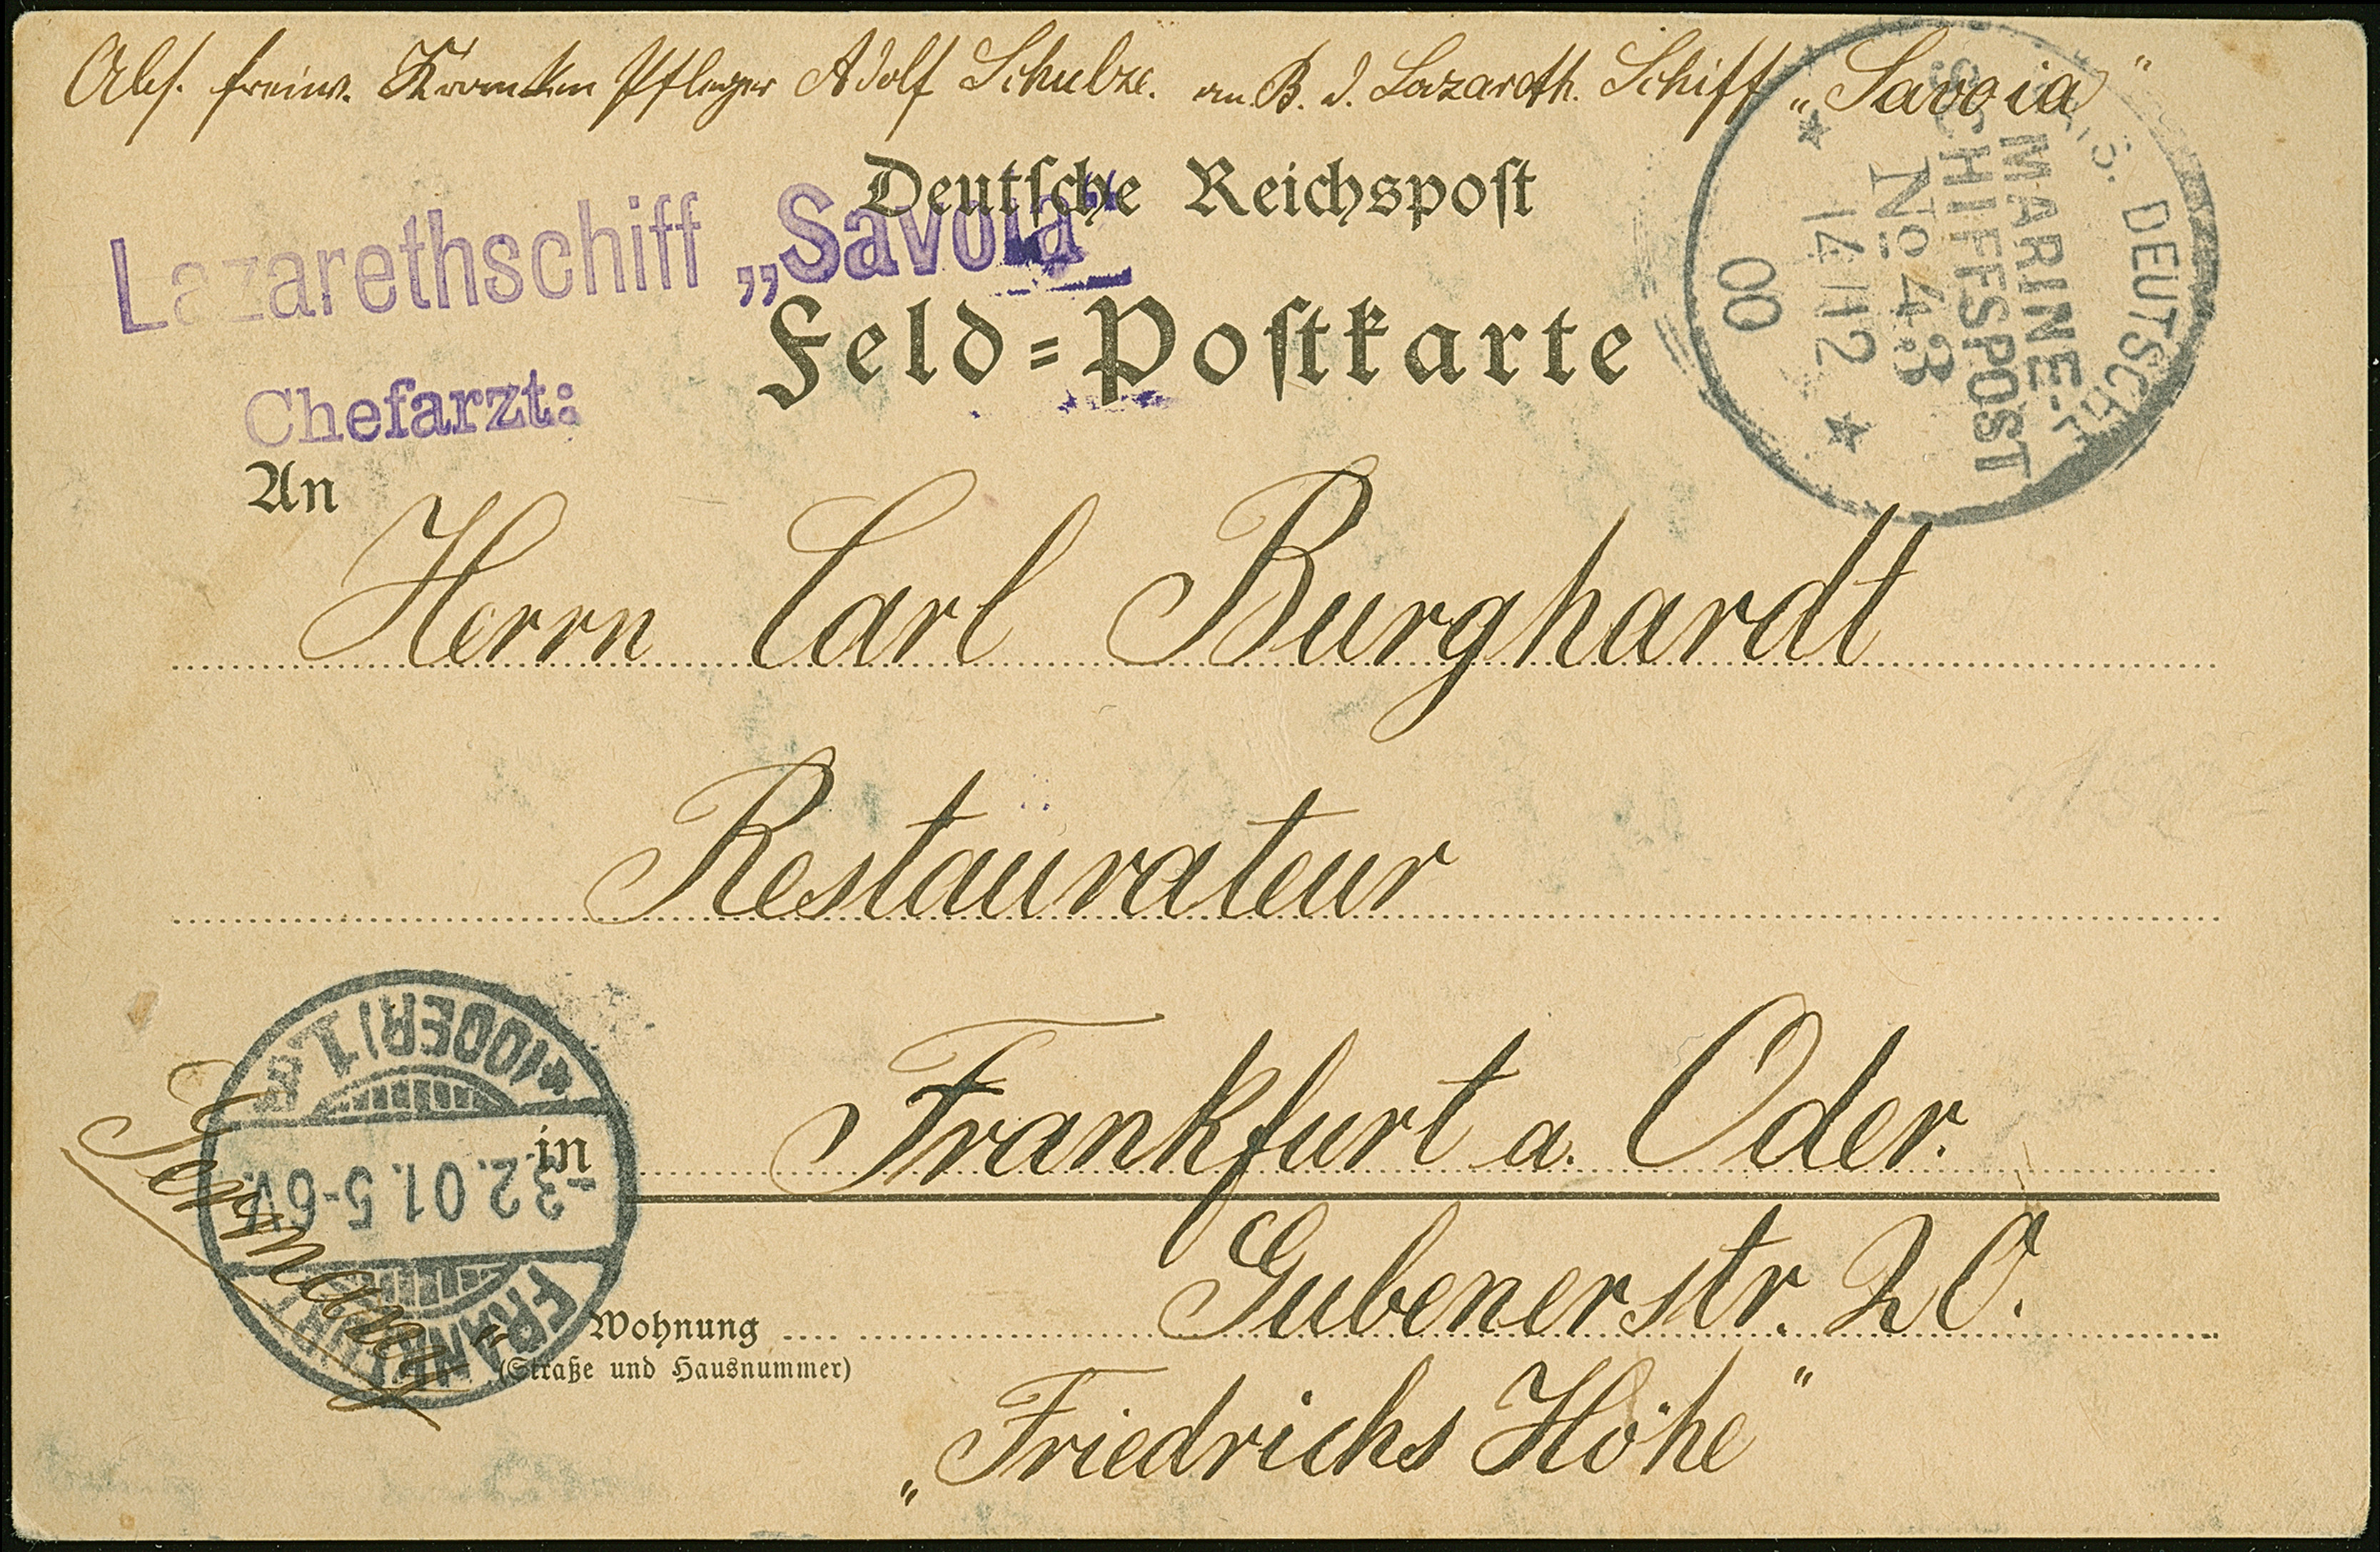 Abs. freiw. Kranken Pfleger Adolf Schulze. an B. d. Lazareth. Schiff „Savoia"
Deutsche Reichspost
Lazarethschiff „Savoia"
Feld=Postkarte
Chefarzt:
DEUTSCHE
MARINE-
SCHIFFSPOST
No 43
14 12
00
An
Herrn Carl Burghardt
Restaurateur
in Frankfurt a. Oder.
Gubenerstr. 20.
Wohnung
(Straße und Hausnummer)
„Friedrichs Höhe"
Germany
FRANKFURT
-3.2.01.5-6V.
*(ODER)1